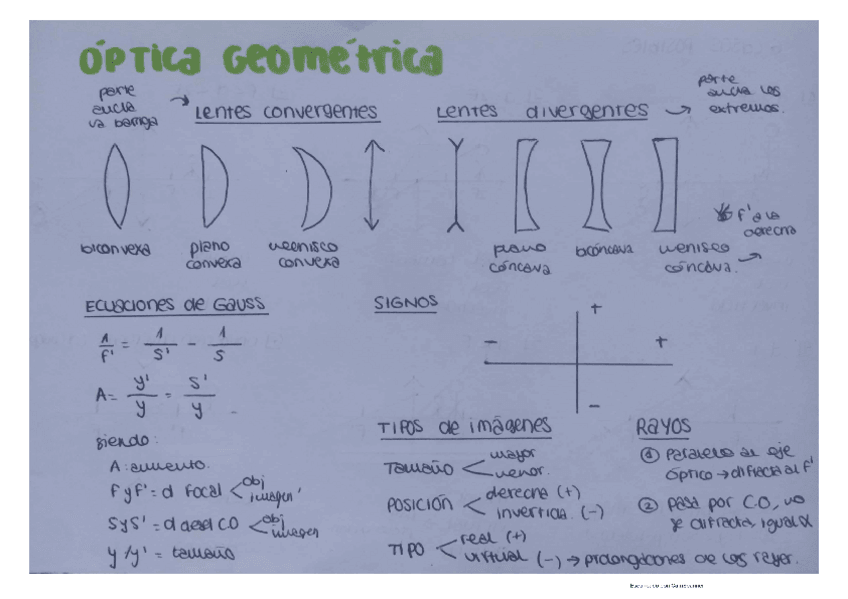 ÓPTICA GEOMÉTRICA
parte
ancha
va barriga
→ LENTES CONVERGENTES
LENTES DIVERGENTES →
parte
ancha los
extremos.
biconvexa
plano
convexa
menisco
convexa
plano
cóncava
bicóncava
menisco
cóncava.
f' a la
derecha
ECUACIONES de GAUSS
1/f' = 1/s' - 1/s
A = y'/y = s'/y
siendo:
A: aumento.
f y f' = d focal < obj
imagen
s y s' = d desd CO < obj
imagen
y / y' = tamaño
SIGNOS
+
- +
-
TIPOS de imágenes
TAMAÑO < mayor
menor.
POSICIÓN < derecha (+)
invertida. (-)
TIPO < real (+)
virtual (-) → prolongaciones de los rayos.
RAYOS
① Paralelo al eje
óptico → difracta al f'
② pasa por CO, no
se difracta, igual α